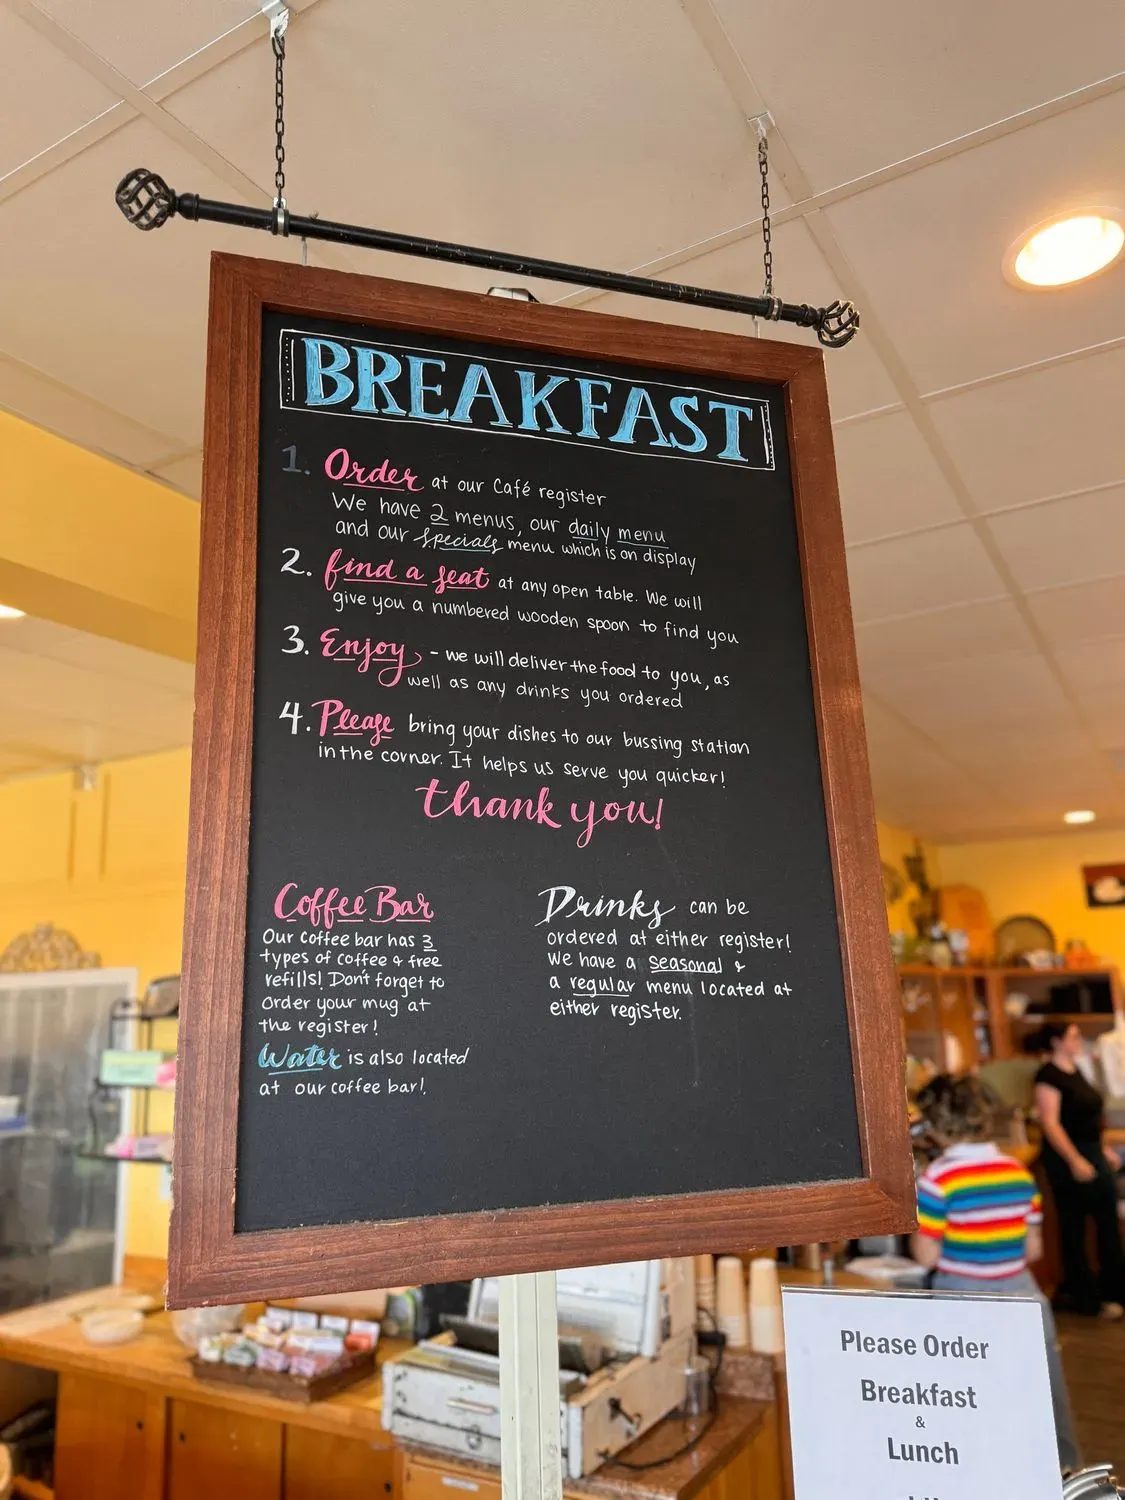 BREAKFAST
1. Order at our Café register
We have 2 menus, our daily menu
and our specials menu which is on display
2. find a seat at any open table. We will
give you a numbered wooden spoon to find you
3. Enjoy - we will deliver the food to you, as
well as any drinks you ordered
4. Please bring your dishes to our bussing station
in the corner. It helps us serve you quicker!
thank you!
Coffee Bar
Our coffee bar has 3
types of coffee & free
refills! Don't forget to
order your mug at
the register!
Water is also located
at our coffee bar!
Drinks can be
ordered at either register!
We have a seasonal &
a regular menu located at
either register.
Please Order
Breakfast
&
Lunch